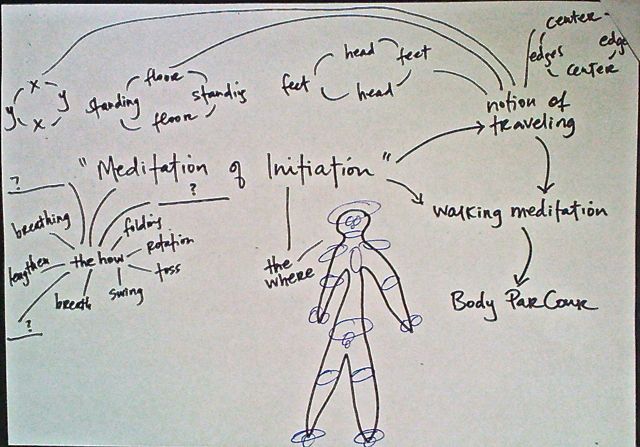 x
y
y
x
floor
standing
standing
floor
head
feet
feet
head
center
edges
edges
center
notion of
traveling
"Meditation of Initiation"
?
?
breathing
folding
rotation
toss
swing
breath
lengthen
the how
?
the
where
walking meditation
Body ParCour